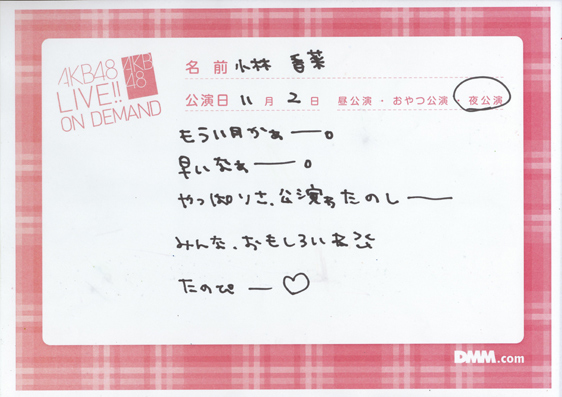 AKB48
LIVE!!
ON DEMAND
AKB
48
名前 小林 香菜
公演日 11月 2日 昼公演・おやつ公演・夜公演
もう11月かぁー。
早いなぁー。
やっぱりさ、公演わたのしー
みんな、おもしろいね
たのぴー♡
DMM.com